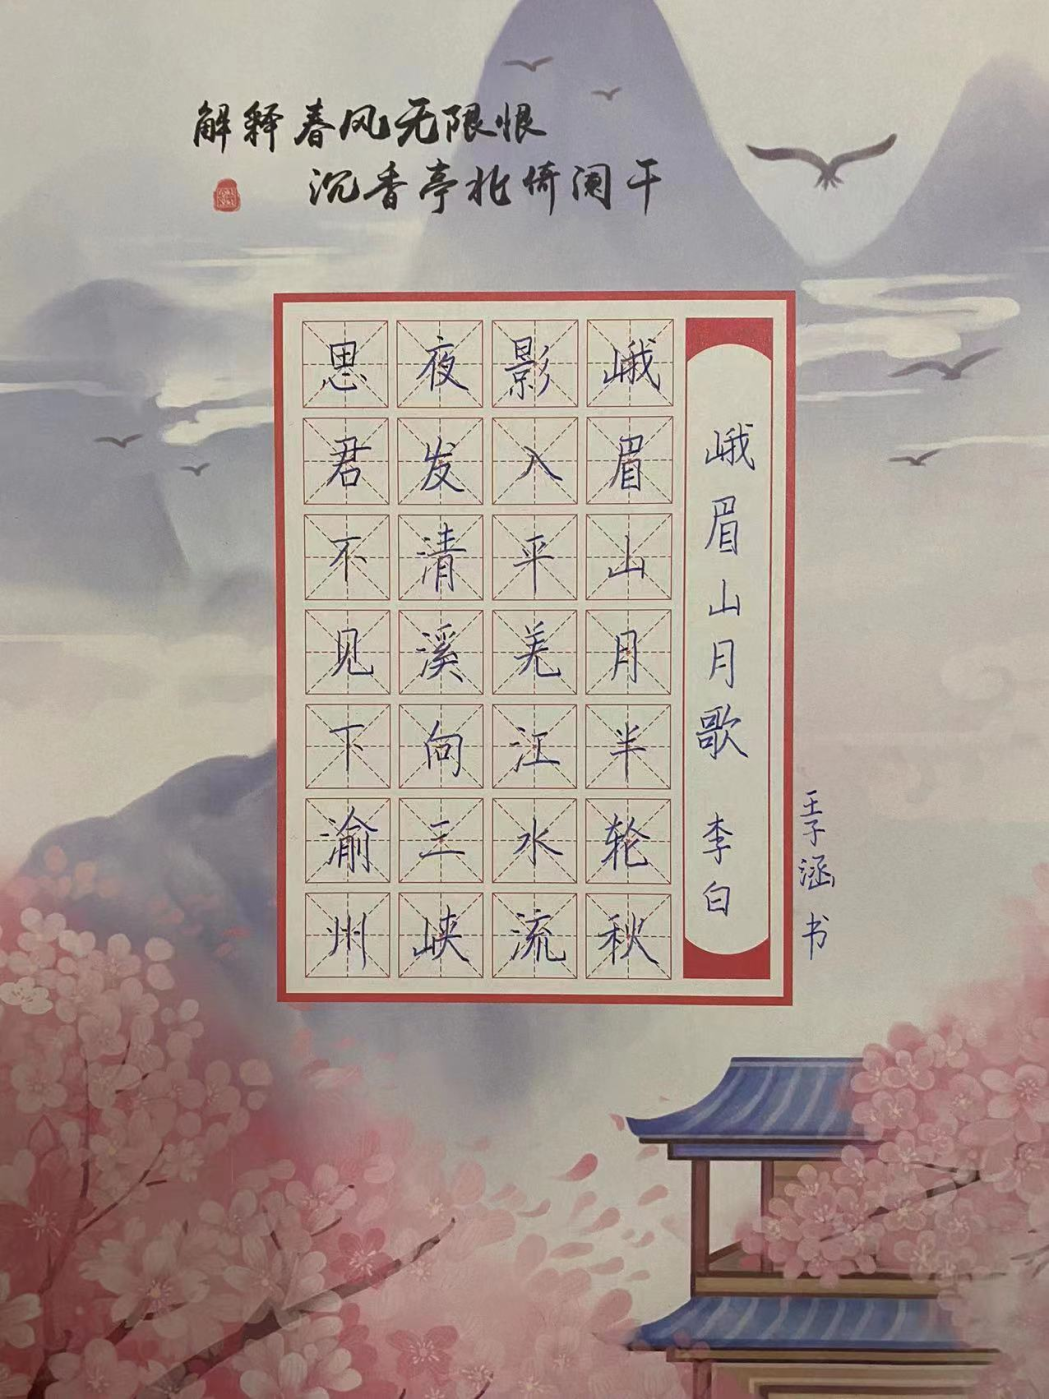 解释春风无限恨
沉香亭北倚阑干
峨眉山月歌 李白
峨眉山月半轮秋
影入平羌江水流
夜发清溪向三峡
思君不见下渝州
王子涵 书